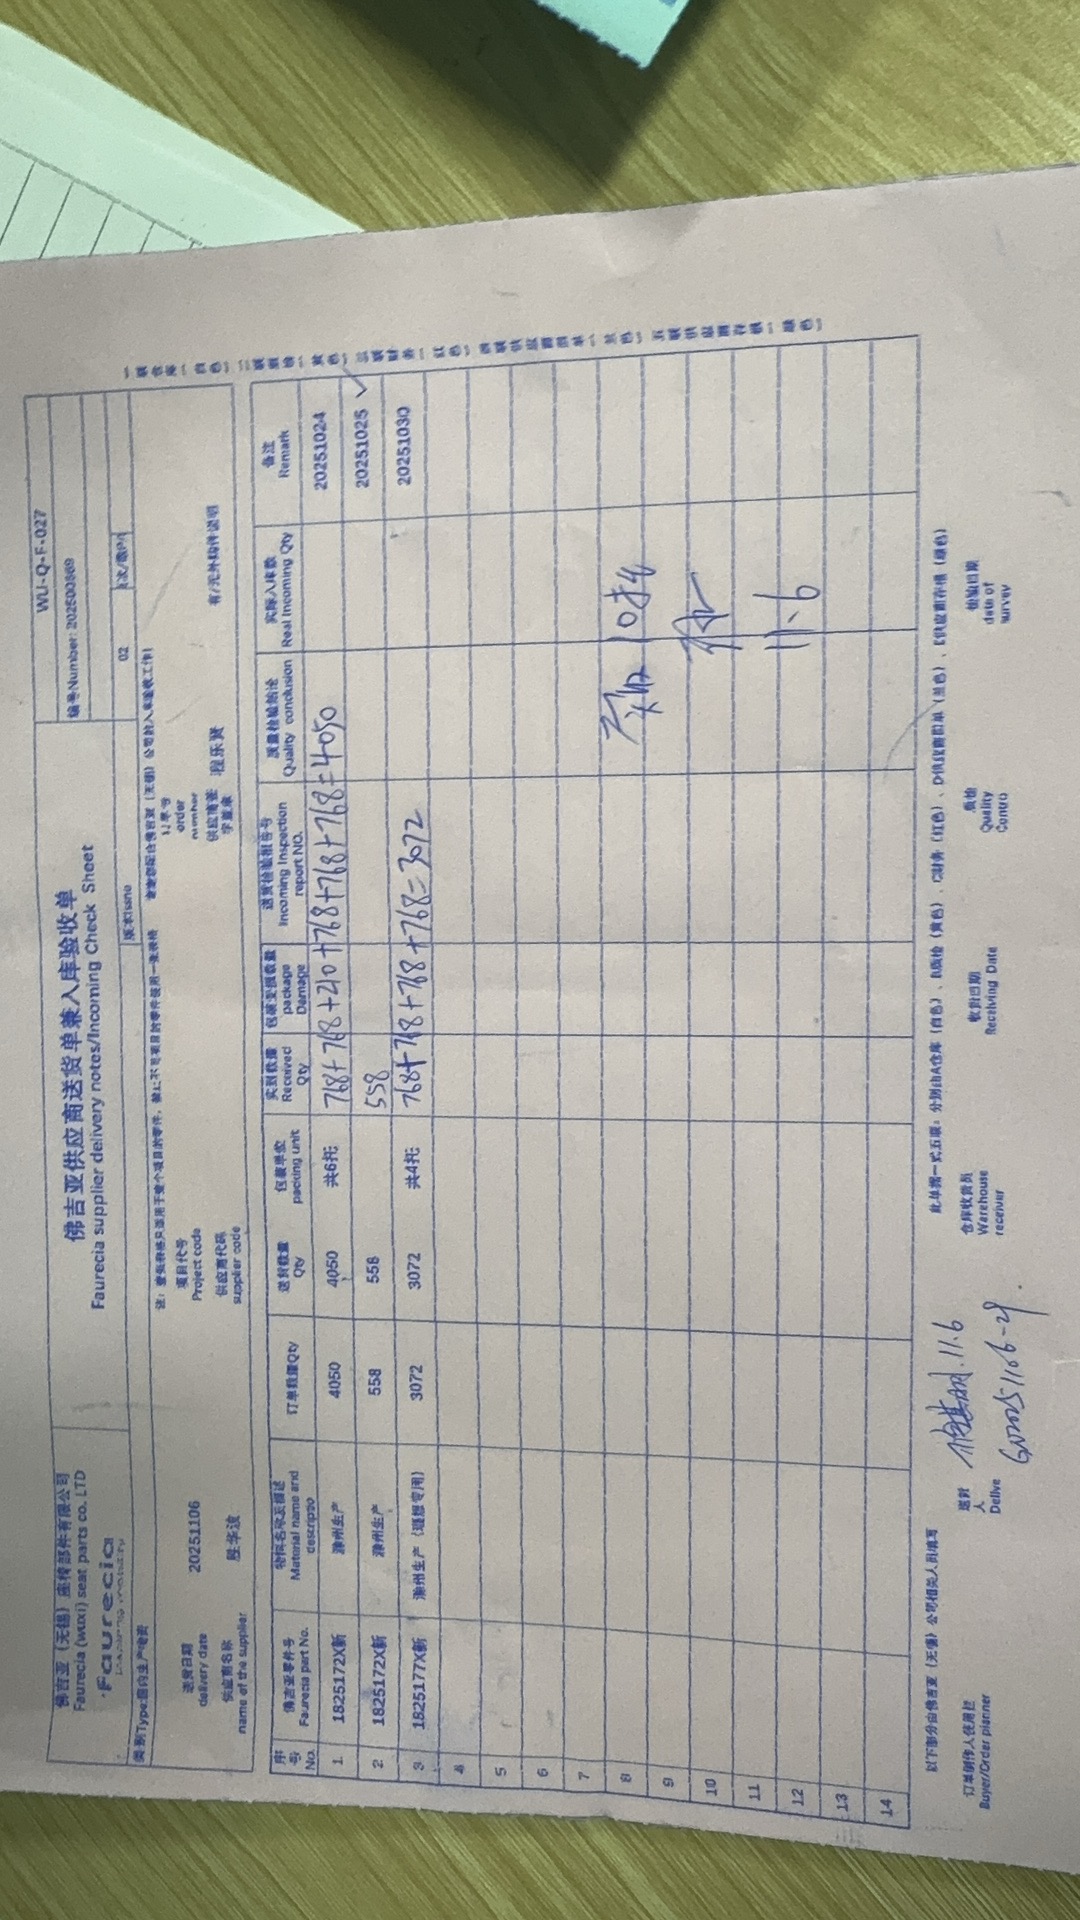 佛吉亚（无锡）座椅部件有限公司
Faurecia (wuxi) seat parts co. LTD
faurecia
佛吉亚供应商送货单兼入库验收单
Faurecia supplier delivery notes/Incoming Check Sheet
WU-Q-F-027
编号Number: 202500869
版本Issue
02
类别Type:国内生产物资
送货日期
delivery date
20251106
项目代号
Project code
订单号
order
number
供应商名称
name of the supplier
供应商代码
supplier code
供应商签
字盖章
程乐贤
序号 No.
佛吉亚零件号 Faurecia part No.
物料名称及描述 Material name and
订单数量Qty
送货数量 Qty
包装单位 packing unit
实到数量 Received Qty
包装受损数量 package Damage
送货检验报告号 Incoming Inspection report NO.
质量检验结论 Quality conclusion
实际入库数 Real Incoming Qty
备注 Remark
1 1825172X新 滁州生产 4050 4050 共6托 768+768+210+768+768+768=4050 20251024
2 1825172X新 滁州生产 558 558 558 20251025 ✓
3 1825177X新 滁州生产（理想专用） 3072 3072 共4托 768+768+768+768=3072 20251030
4
5
6
7
8
9
10
11
12
13
14
实收 10托
11.6
以下部分由佛吉亚（无锡）公司相关人员填写
此单据一式五联：分别由A仓库（白色）、B质检（黄色）、C财务（红色）、D供应商回单（兰色）、E供应商存根（绿色）
Buyer/Order planner
送货
人
Delive
11.6
仓库收货员
Warehouse
receiver
收货日期
Receiving Date
质检
Quality
Contro
检验日期
date of
survey